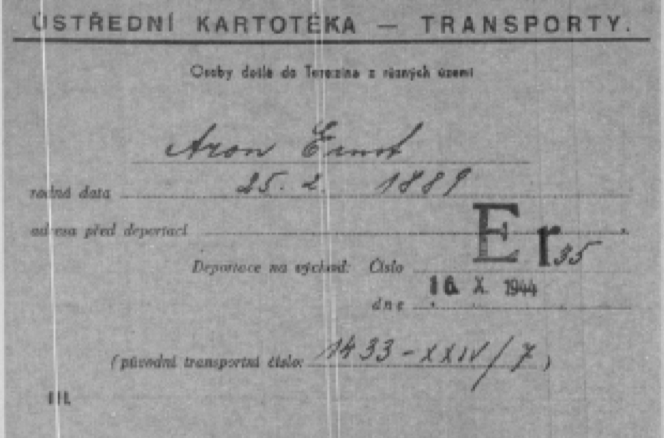 ÚSTŘEDNÍ KARTOTÉKA — TRANSPORTY.
Osoby došlé do Terezína z různých území
Aron Ernst
rodná data 25. 2. 1889
adresa před deportací
Deportace na východ: Číslo Er 35
dne 16. X. 1944
(původní transportní číslo: 1433-XXIV/7)
III.